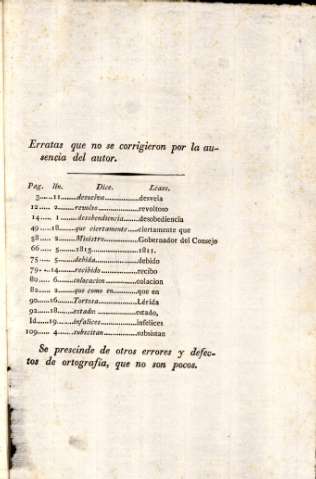 Erratas que no se corrigieron por la au-
sencia del autor.
Pag. lin. Dice. Lease.
3.....11......desvelva............desvela
12.....2......revolso.............revoltoso
14.....1......desobendiencia......desobediencia
49.....18.....que ciertamente.....ciertamente que
58.....2......Ministro............Gobernador del Consejo
66.....5......1815................1811.
75.....5......debida..............debido
79.....14.....recibido............recibo
80.....6......colocacion..........colacion
82.....2......que como en.........que en
90.....16.....Tortosa.............Lérida
92.....18.....estado..............estado,
Id.....19.....infalices...........infelices
109....4......subscitan...........subsistan
Se prescinde de otros errores y defec-
tos de ortografía, que no son pocos.